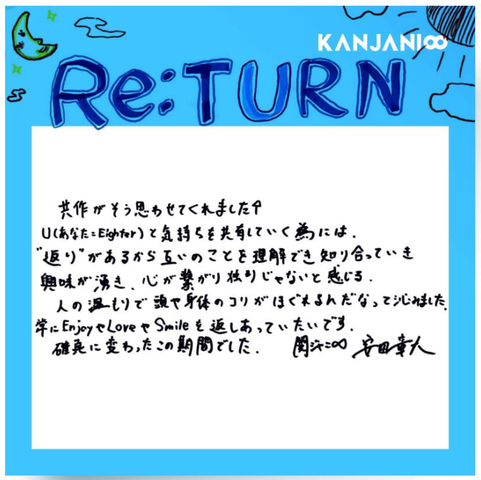 KANJANI∞
Re:TURN
共作がそう思わせてくれました↑
U(あなた=Eighter)と気持ちを共有していく為には、
"返り"があるから互いのことを理解でき知り合っていき
興味が湧き、心が繋がり独りじゃないと感じる。
人の温もりで頭や身体のコリがほぐれるんだなって沁みました。
常にEnjoyやLoveやSmileを返しあっていたいです。
確実に変わったこの期間でした。 関ジャニ∞ 安田章大